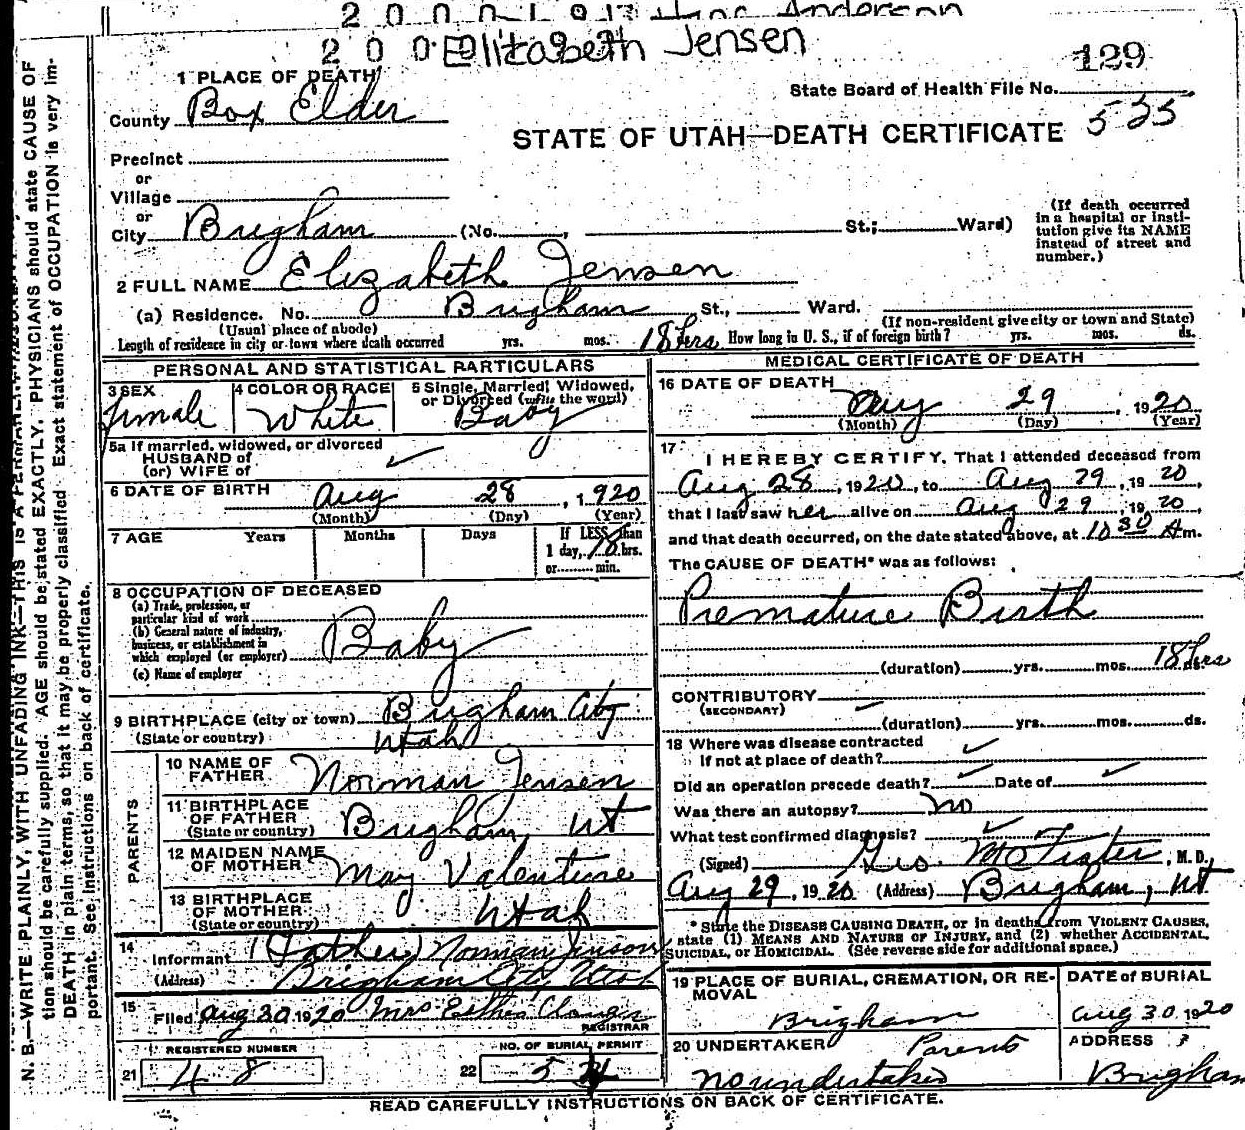 Elizabeth Jensen
129
1 PLACE OF DEATH
State Board of Health File No.
County Box Elder
535
STATE OF UTAH—DEATH CERTIFICATE
Precinct
or
Village
or
City Brigham (No. , St.; Ward)
(If death occurred in a hospital or institution give its NAME instead of street and number.)
2 FULL NAME Elizabeth Jensen
(a) Residence. No. Brigham St., Ward.
(Usual place of abode)
(If non-resident give city or town and State)
Length of residence in city or town where death occurred yrs. mos. 18 hrs How long in U. S., if of foreign birth? yrs. mos. ds.
PERSONAL AND STATISTICAL PARTICULARS
3 SEX
female
4 COLOR OR RACE
White
5 Single, Married, Widowed, or Divorced (write the word)
Baby
5a If married, widowed, or divorced
HUSBAND of
(or) WIFE of
6 DATE OF BIRTH Aug 28, 1920
(Month) (Day) (Year)
7 AGE Years Months Days If LESS than
1 day, 18 hrs.
or min.
8 OCCUPATION OF DECEASED
(a) Trade, profession, or
particular kind of work
(b) General nature of industry,
business, or establishment in
which employed (or employer) Baby
(c) Name of employer
9 BIRTHPLACE (city or town) Brigham City
(State or country) Utah
PARENTS
10 NAME OF FATHER Norman Jensen
11 BIRTHPLACE OF FATHER (State or country) Brigham, Ut
12 MAIDEN NAME OF MOTHER May Valentine
13 BIRTHPLACE OF MOTHER (State or country) Utah
14
Informant (Father) Norman Jenson
(Address) Brigham City Utah
15
Filed Aug 30 1920 Mrs Esther
REGISTRAR
REGISTERED NUMBER
21 48
NO. OF BURIAL PERMIT
22
MEDICAL CERTIFICATE OF DEATH
16 DATE OF DEATH
Aug 29, 1920
(Month) (Day) (Year)
17
I HEREBY CERTIFY, That I attended deceased from
Aug 28, 1920, to Aug 29, 1920,
that I last saw her alive on Aug 29, 1920,
and that death occurred, on the date stated above, at 10 30 A m.
The CAUSE OF DEATH* was as follows:
Premature Birth
(duration) yrs. mos. 18 hrs
CONTRIBUTORY
(SECONDARY)
(duration) yrs. mos. ds.
18 Where was disease contracted
If not at place of death?
Did an operation precede death? Date of
Was there an autopsy? no
What test confirmed diagnosis?
(Signed) Geo. M, M. D.
Aug 29, 1920 (Address) Brigham, Ut
* State the DISEASE CAUSING DEATH, or in deaths from VIOLENT CAUSES,
state (1) MEANS AND NATURE OF INJURY, and (2) whether ACCIDENTAL,
SUICIDAL, or HOMICIDAL. (See reverse side for additional space.)
19 PLACE OF BURIAL, CREMATION, OR REMOVAL
Brigham
DATE of BURIAL
Aug 30, 1920
20 UNDERTAKER Parents
no undertaker
ADDRESS
Brigham
READ CAREFULLY INSTRUCTIONS ON BACK OF CERTIFICATE.
N. B.—WRITE PLAINLY, WITH UNFADING INK—THIS IS A PERMANENT
tion should be carefully supplied. AGE should be stated EXACTLY. PHYSICIANS should state CAUSE OF
DEATH in plain terms, so that it may be properly classified. Exact statement of OCCUPATION is very im-
portant. See instructions on back of certificate.